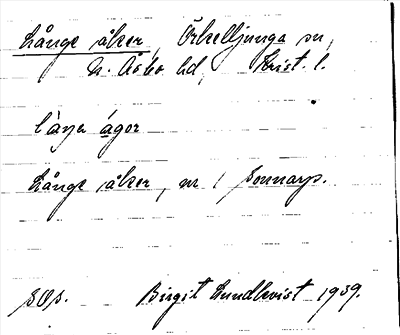 Långe åker, Örkelljunga sn,
N. Åsbo hd, Krist. l.
Långe åker, nr 1 Sonnarp.
Birgit Lundkvist 1939.